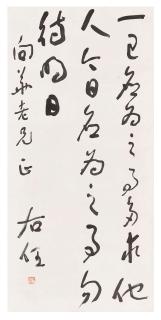 一己應為之事勿求他
人今日應為之事勿
待明日
向華老兄正
右任